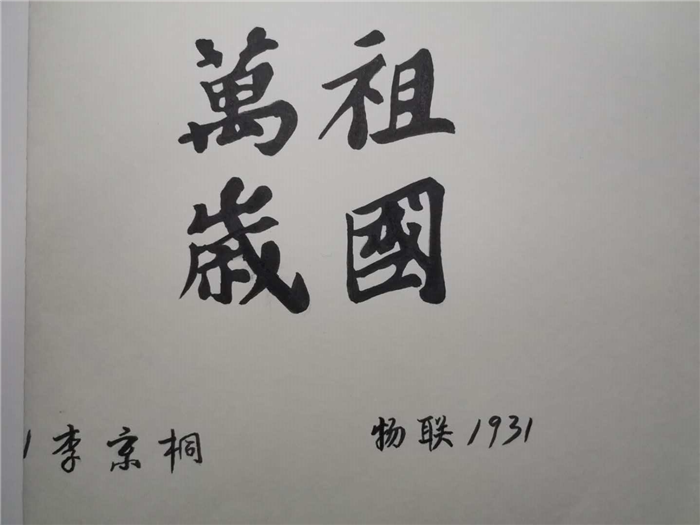 祖國
萬歲
李京桐
物联1931